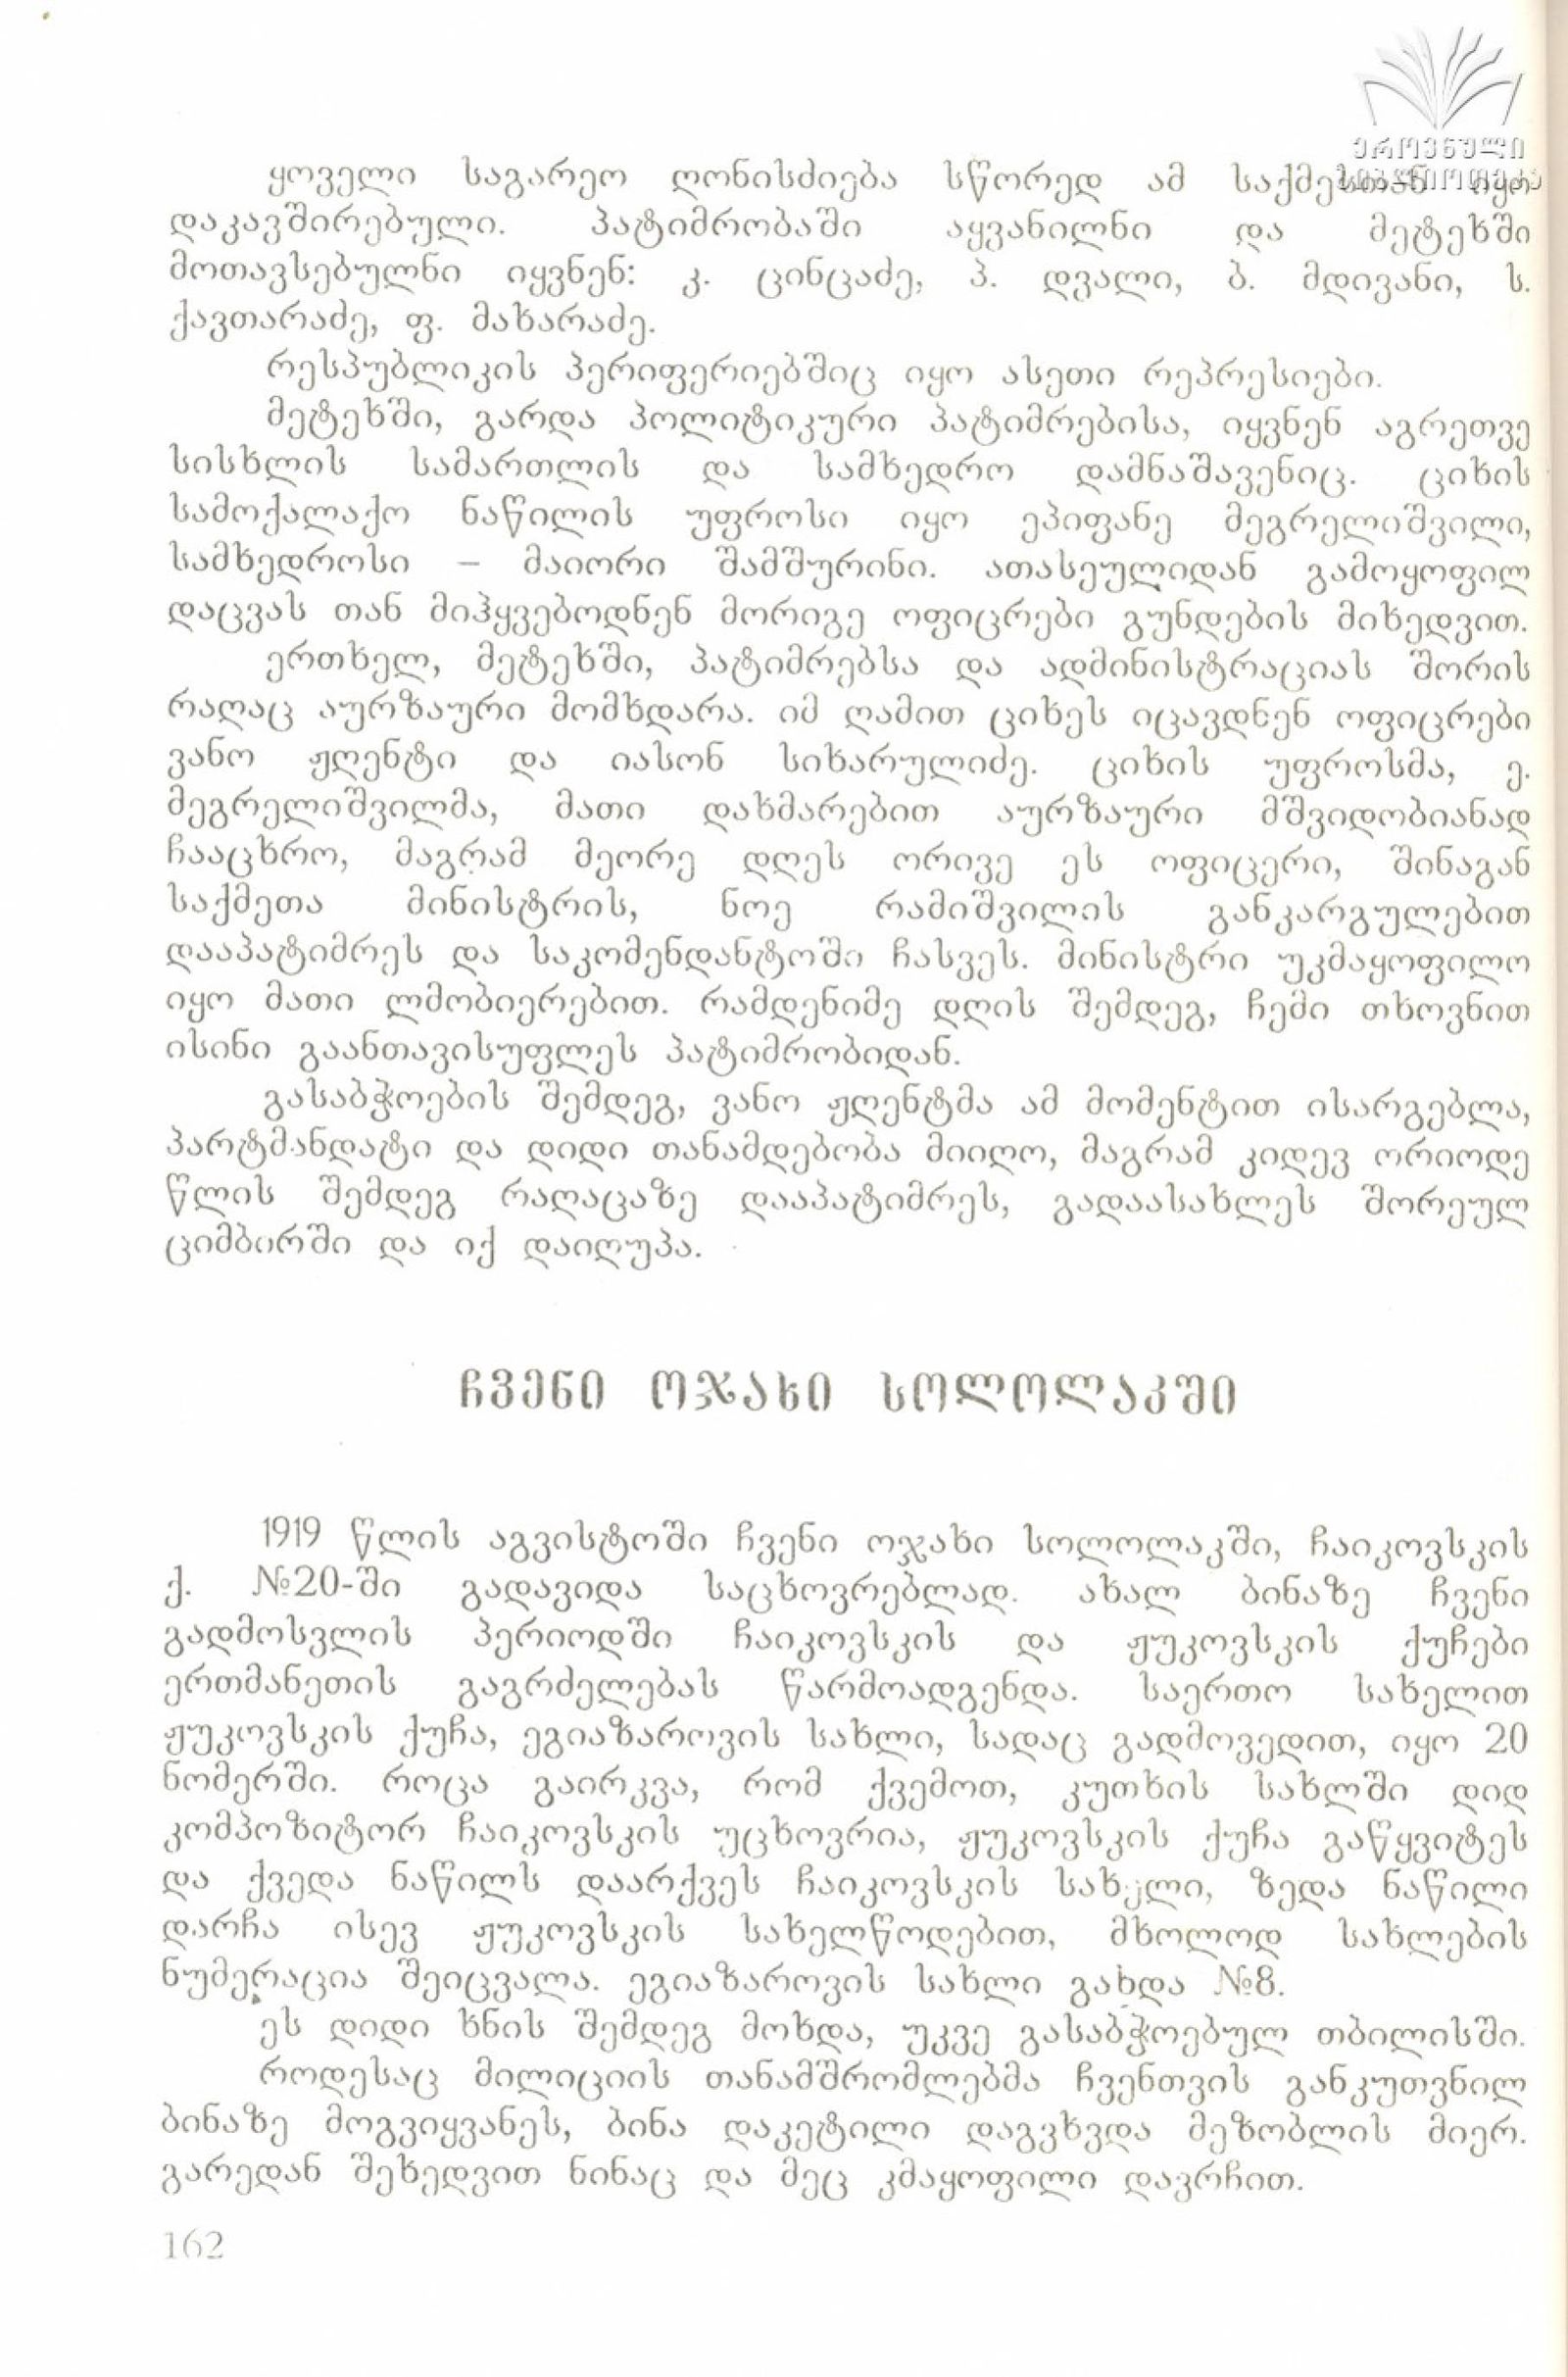 ეროვნული
ბიბლიოთეკა
ყოველი საგარეო ღონისძიება სწორედ ამ საქმესთან იყო
დაკავშირებული. პატიმრობაში აყვანილნი და მეტეხში
მოთავსებულნი იყვნენ: კ. ცინცაძე, პ. დვალი, ბ. მდივანი, ს.
ქავთარაძე, ფ. მახარაძე.
რესპუბლიკის პერიფერიებშიც იყო ასეთი რეპრესიები.
მეტეხში, გარდა პოლიტიკური პატიმრებისა, იყვნენ აგრეთვე
სისხლის სამართლის და სამხედრო დამნაშავენიც. ციხის
სამოქალაქო ნაწილის უფროსი იყო ეპიფანე მეგრელიშვილი,
სამხედროსი – მაიორი შამშურინი. ათასეულიდან გამოყოფილ
დაცვას თან მიჰყვებოდნენ მორიგე ოფიცრები გუნდების მიხედვით.
ერთხელ, მეტეხში, პატიმრებსა და ადმინისტრაციას შორის
რაღაც აურზაური მომხდარა. იმ ღამით ციხეს იცავდნენ ოფიცრები
ვანო ჟღენტი და იასონ სიხარულიძე. ციხის უფროსმა, ე.
მეგრელიშვილმა, მათი დახმარებით აურზაური მშვიდობიანად
ჩააცხრო, მაგრამ მეორე დღეს ორივე ეს ოფიცერი, შინაგან
საქმეთა მინისტრის, ნოე რამიშვილის განკარგულებით
დააპატიმრეს და საკომენდანტოში ჩასვეს. მინისტრი უკმაყოფილო
იყო მათი ლმობიერებით. რამდენიმე დღის შემდეგ, ჩემი თხოვნით
ისინი გაანთავისუფლეს პატიმრობიდან.
გასაბჭოების შემდეგ, ვანო ჟღენტმა ამ მომენტით ისარგებლა,
პარტმანდატი და დიდი თანამდებობა მიიღო, მაგრამ კიდევ ორიოდე
წლის შემდეგ რაღაცაზე დააპატიმრეს, გადაასახლეს შორეულ
ციმბირში და იქ დაიღუპა.
ჩვენი ოჯახი სოლოლაკში
1919 წლის აგვისტოში ჩვენი ოჯახი სოლოლაკში, ჩაიკოვსკის
ქ. №20-ში გადავიდა საცხოვრებლად. ახალ ბინაზე ჩვენი
გადმოსვლის პერიოდში ჩაიკოვსკის და ჟუკოვსკის ქუჩები
ერთმანეთის გაგრძელებას წარმოადგენდა. საერთო სახელით
ჟუკოვსკის ქუჩა, ეგიაზაროვის სახლი, სადაც გადმოვედით, იყო 20
ნომერში. როცა გაირკვა, რომ ქვემოთ, კუთხის სახლში დიდ
კომპოზიტორ ჩაიკოვსკის უცხოვრია, ჟუკოვსკის ქუჩა გაწყვიტეს
და ქვედა ნაწილს დაარქვეს ჩაიკოვსკის სახელი, ზედა ნაწილი
დარჩა ისევ ჟუკოვსკის სახელწოდებით, მხოლოდ სახლების
ნუმერაცია შეიცვალა. ეგიაზაროვის სახლი გახდა №8.
ეს დიდი ხნის შემდეგ მოხდა, უკვე გასაბჭოებულ თბილისში.
როდესაც მილიციის თანამშრომლებმა ჩვენთვის განკუთვნილ
ბინაზე მოგვიყვანეს, ბინა დაკეტილი დაგვხვდა მეზობლის მიერ.
გარედან შეხედვით ნინაც და მეც კმაყოფილი დავრჩით.
162